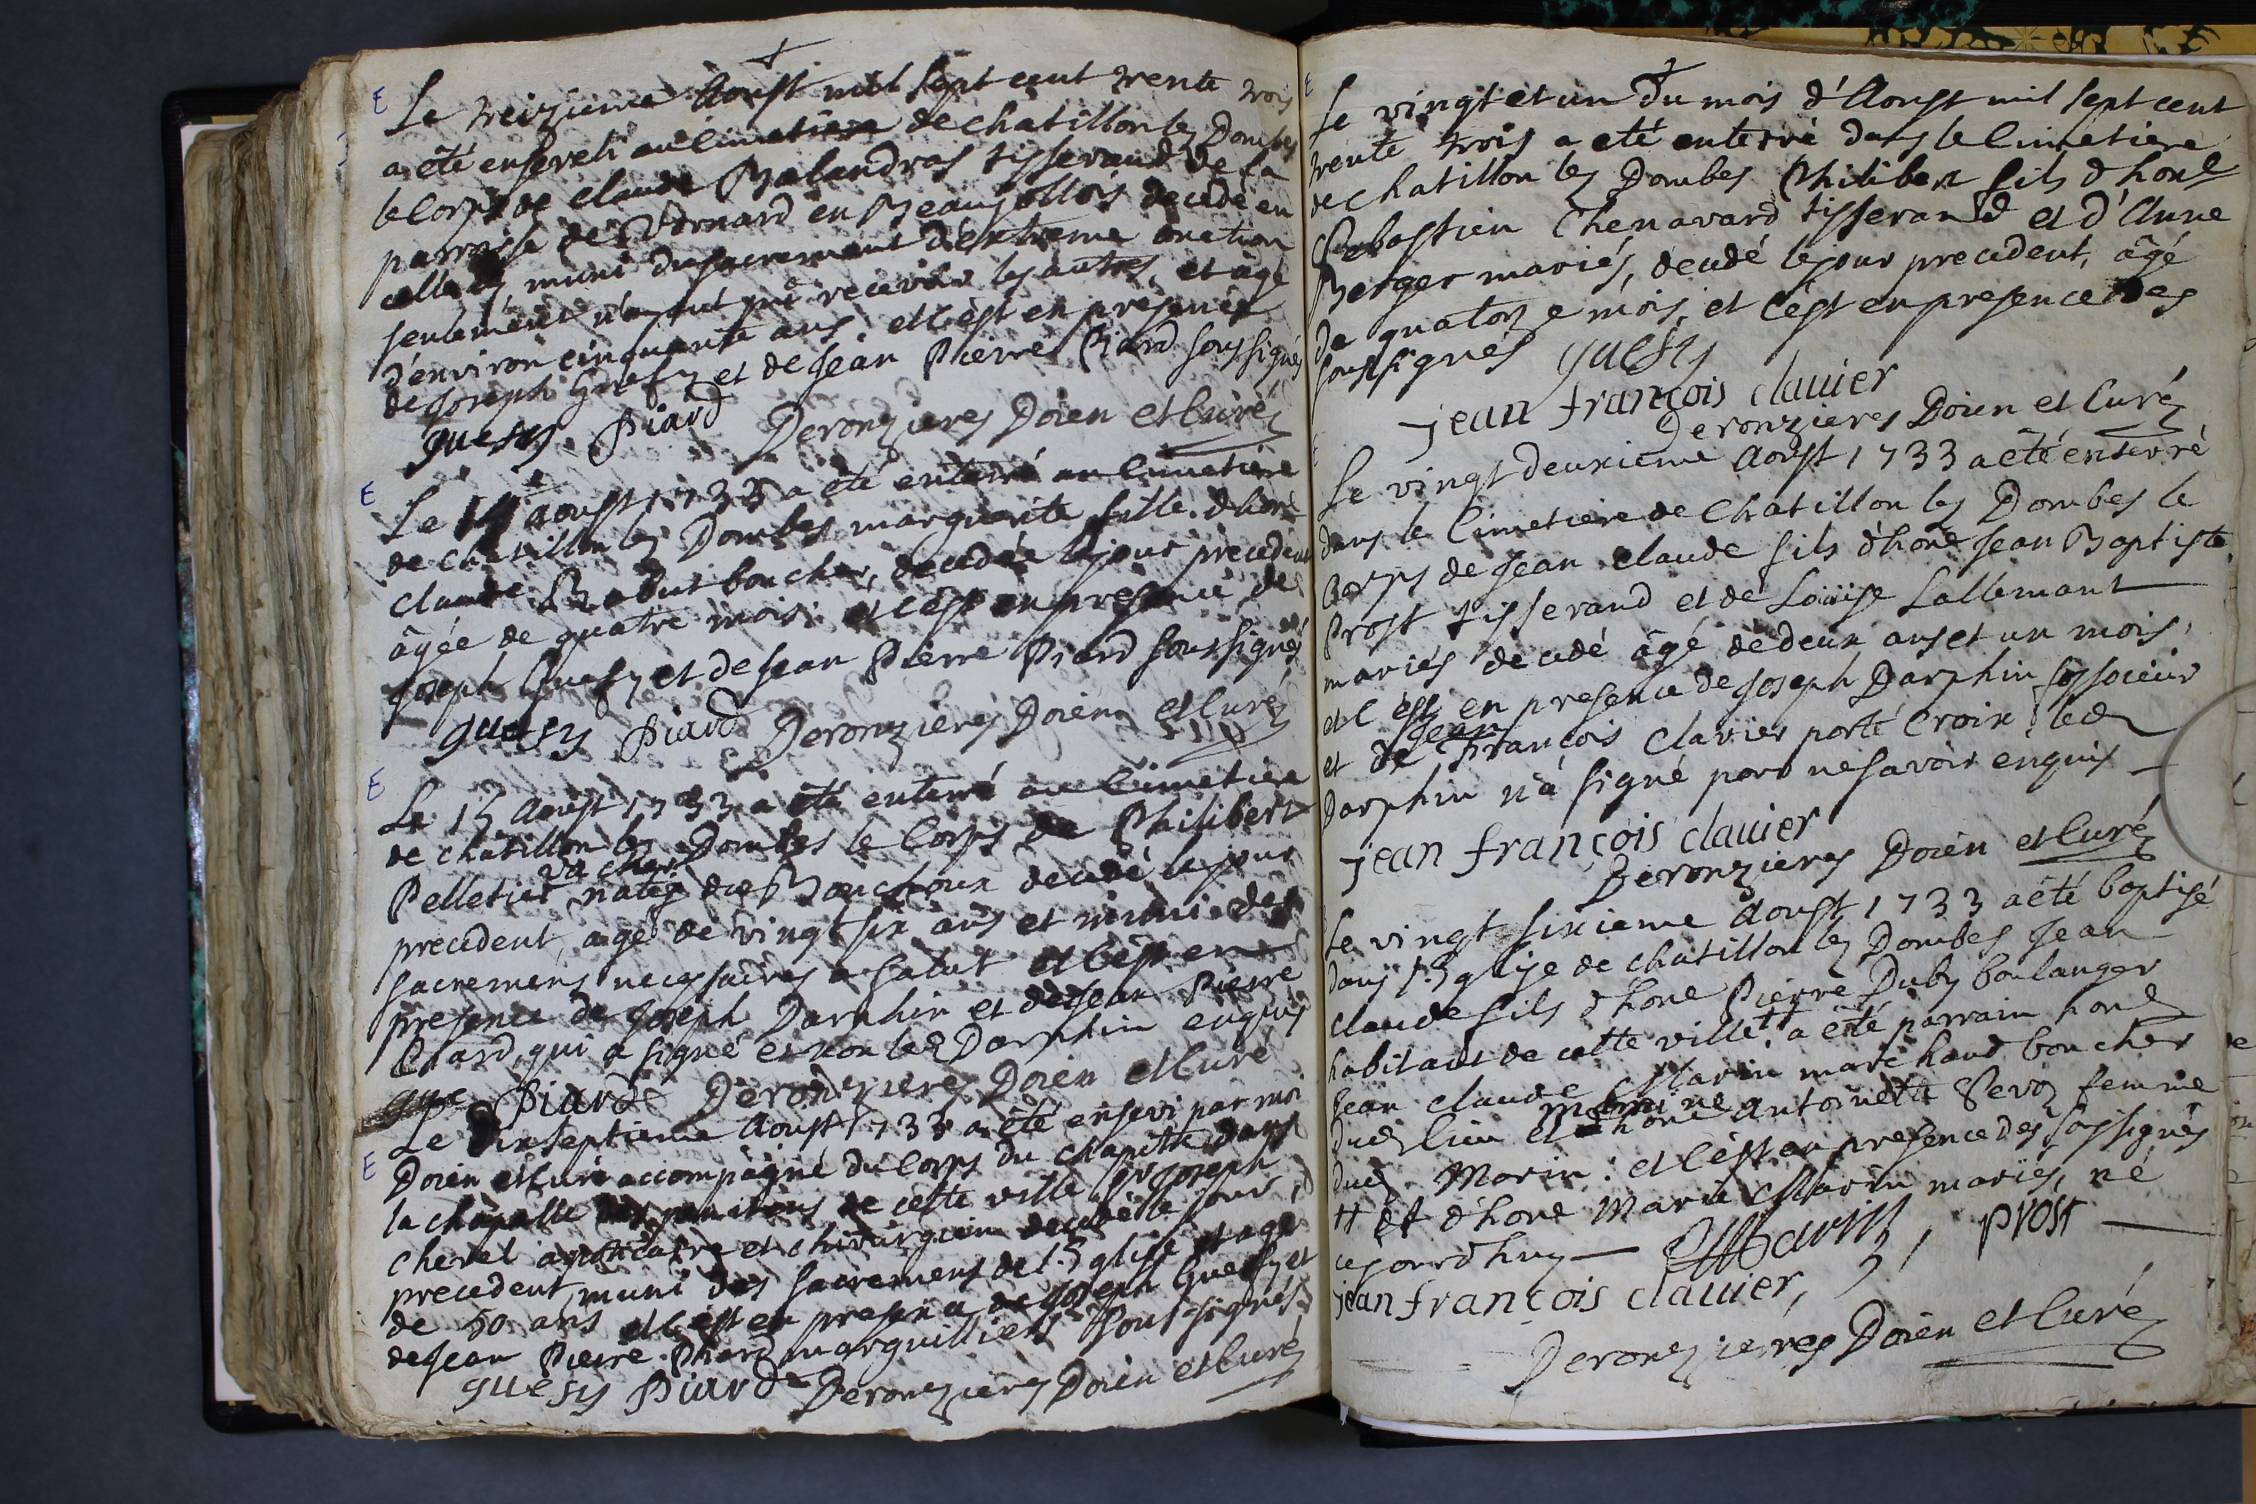 Le treizieme Aoust mil sept cent trente trois
a été enseveli au Cimetiere de chatillon les Dombes
le Corps de claude Balandras tisserand de la
parroisse de Vernard en Beaujollois decedé en
celle cy, muni du sacrement d'extreme onction
seulement n'ayant pu recevoir les autres, et âgé
d'environ cinquante ans. et c'est en presence
de Joseph Guesy et de Jean Pierre Piard soussignés
guesy Piard Deronzieres Doien et Curé
Le 14e aoust 1733 a été enterré au Cimetiere
de chatillon les Dombes marguerite fille d'hone
claude Rabut boucher, decedée le jour precedent
âgée de quatre mois. et c'est en presence de
Joseph Guesy et de Jean Pierre Piard soussignés
guesy Piard Deronzieres Doien et Curé
Le 15 Aoust 1733 a été enterré au Cimetiere
de chatillon les Dombes le Corps de Philibert
vacher
Pelletier natif des Bouchoux decedé le jour
precedent, agé de vingt six ans et muni des
sacremens necessaires a salut et c'est en
presence de Joseph Darphin et de Jean Pierre
Piard qui a signé et non led Darphin enquis
Piard Deronzieres Doien et Curé
Le dixseptieme Aoust 1733 a été enseveli par moi
Doien et Curé accompagné du Corps du chapitre dans
la chapelle des penitens de cette ville Sr Joseph
chevel apoticaire et chirurgien decedé le jour
precedent, muni des sacremens de l'Eglise et agé
de 50 ans et c'est en presence de Joseph Guesy et
de Jean Pierre Piard marguilliers soussignés
guesy Piard Deronzieres Doien et Curé
Le vingt et un du mois d'Aoust mil sept cent
trente trois a eté enterré dans le Cimetiere
de chatillon les Dombes Philibert fils d'hone
Sebastien Chenavard tisserand et d'Anne
Berger mariés, decedé le jour precedent, âgé
de quatorze mois, et c'est en presence des
soussignés guesy
jean françois clauier
Deronzieres Doien et Curé
Le vingt deuxieme Aoust 1733 a été enterré
dans le Cimetiere de Chatillon les Dombes le
Corps de Jean claude fils d'hone Jean Baptiste
Prost tisserand et de Loüise Lallemant
mariés decedé âgé de deux ans et un mois,
et c'est en presence de Joseph Darphin fossoieur
Jean
et de François Clavier porte Croix, led
Darphin n'a signé pour ne savoir enquis
jean françois clauier
Deronzieres Doien et Curé
Le vingt sixieme Aoust 1733 a été baptisé
dans l'Eglise de chatillon les Dombes Jean
claude fils d'hone Pierre Duby boulanger
habitant de cette ville. †† a été parrain hone
Jean claude Marin marchand boucher
maraine
dud lieu et hone Antoinette Sevoz femme
dud Marin: et c'est en presence des sossignés
†† et d'hone Marie Marin mariés, né
cejourdhuy — CMarin, prost —
jean françois clauier,
Deronzierres Doien et Curé